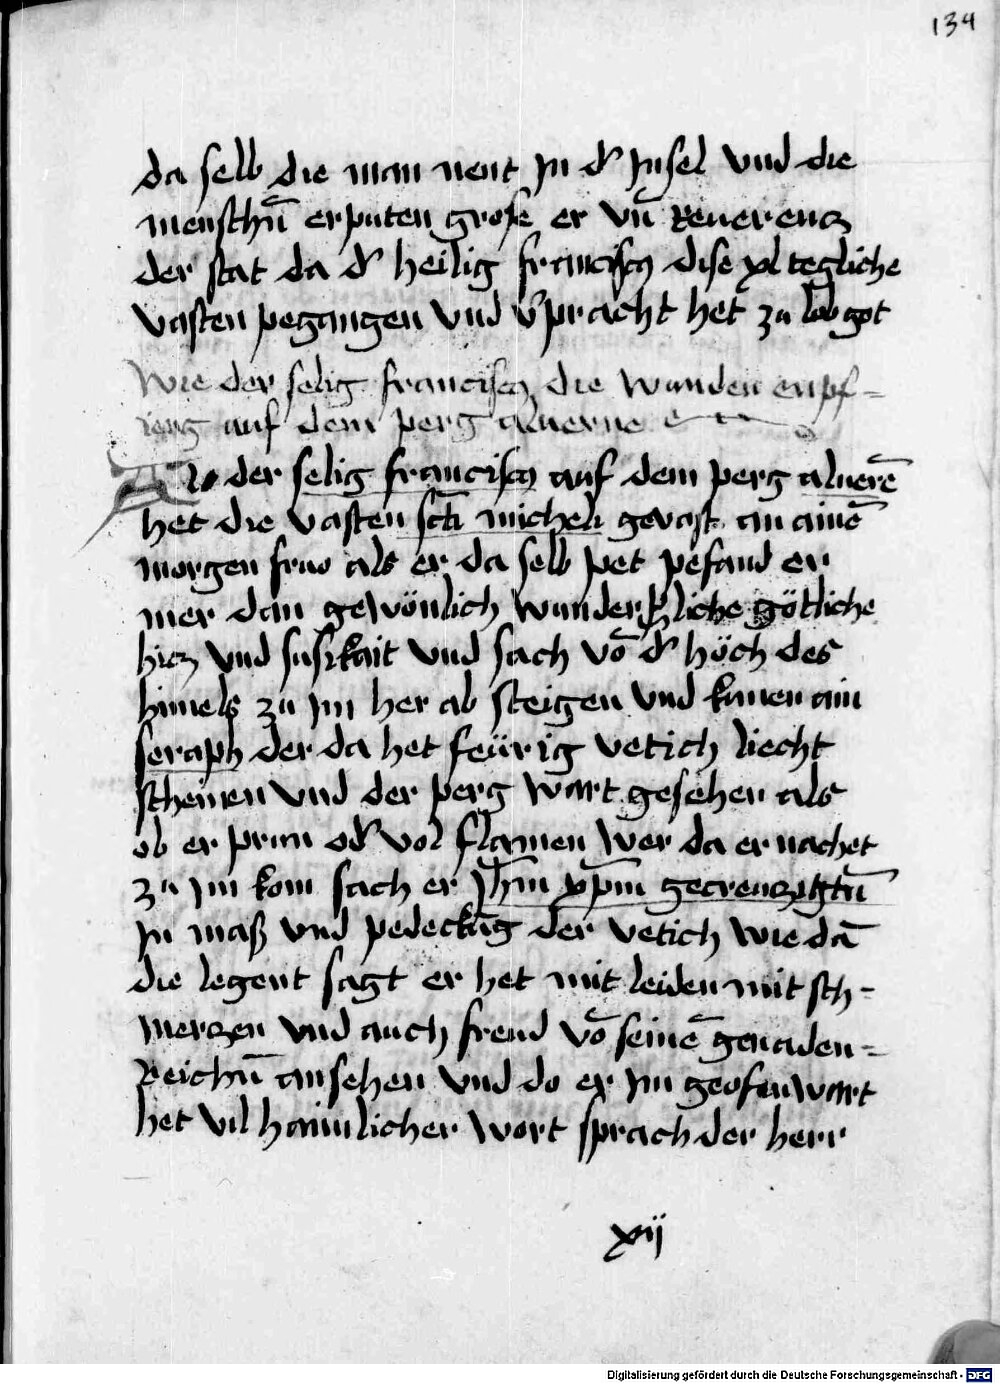 134
da selb die man nent jn d' jnsel vnd die
menschn̄ erputen grose er vn̄ Reuerencz
der stat da d' heilig francisc9 dise xl tegliche
vasten pegangen vnd v'pracht het zu lob got
Wie der selig francisc9 die wunden enpf=
ieng auf dem perg aluerne
Do der selig francisc9 auf dem perg aluerē
het die vasten scti micheli gevast an ainē
morgen fruo als er da selb pet pefand er
mer dan gewönlich wunderperliche götliche
hicz vnd susikait vnd sach vō d' höch des
himels zu jm her ab steigen vnd kumen ain
seraph der da het feürig vetich liecht
scheinen vnd der perg wart gesehen als
ob er prun od' vol flamen wer da er nachet
zu jm kom sach er jhm xp̄m gecreuczigtn̄
jn maß vnd pedeckūg der vetich wie dā
die legent sagt er het mit leiden mit sch=
merczen vnd auch freud vō seinē genaden=
Reichn̄ ansehen vnd do er jm geofenwart
het vil haimlicher wort sprach der herr
xij
Digitalisierung gefördert durch die Deutsche Forschungsgemeinschaft - DFG